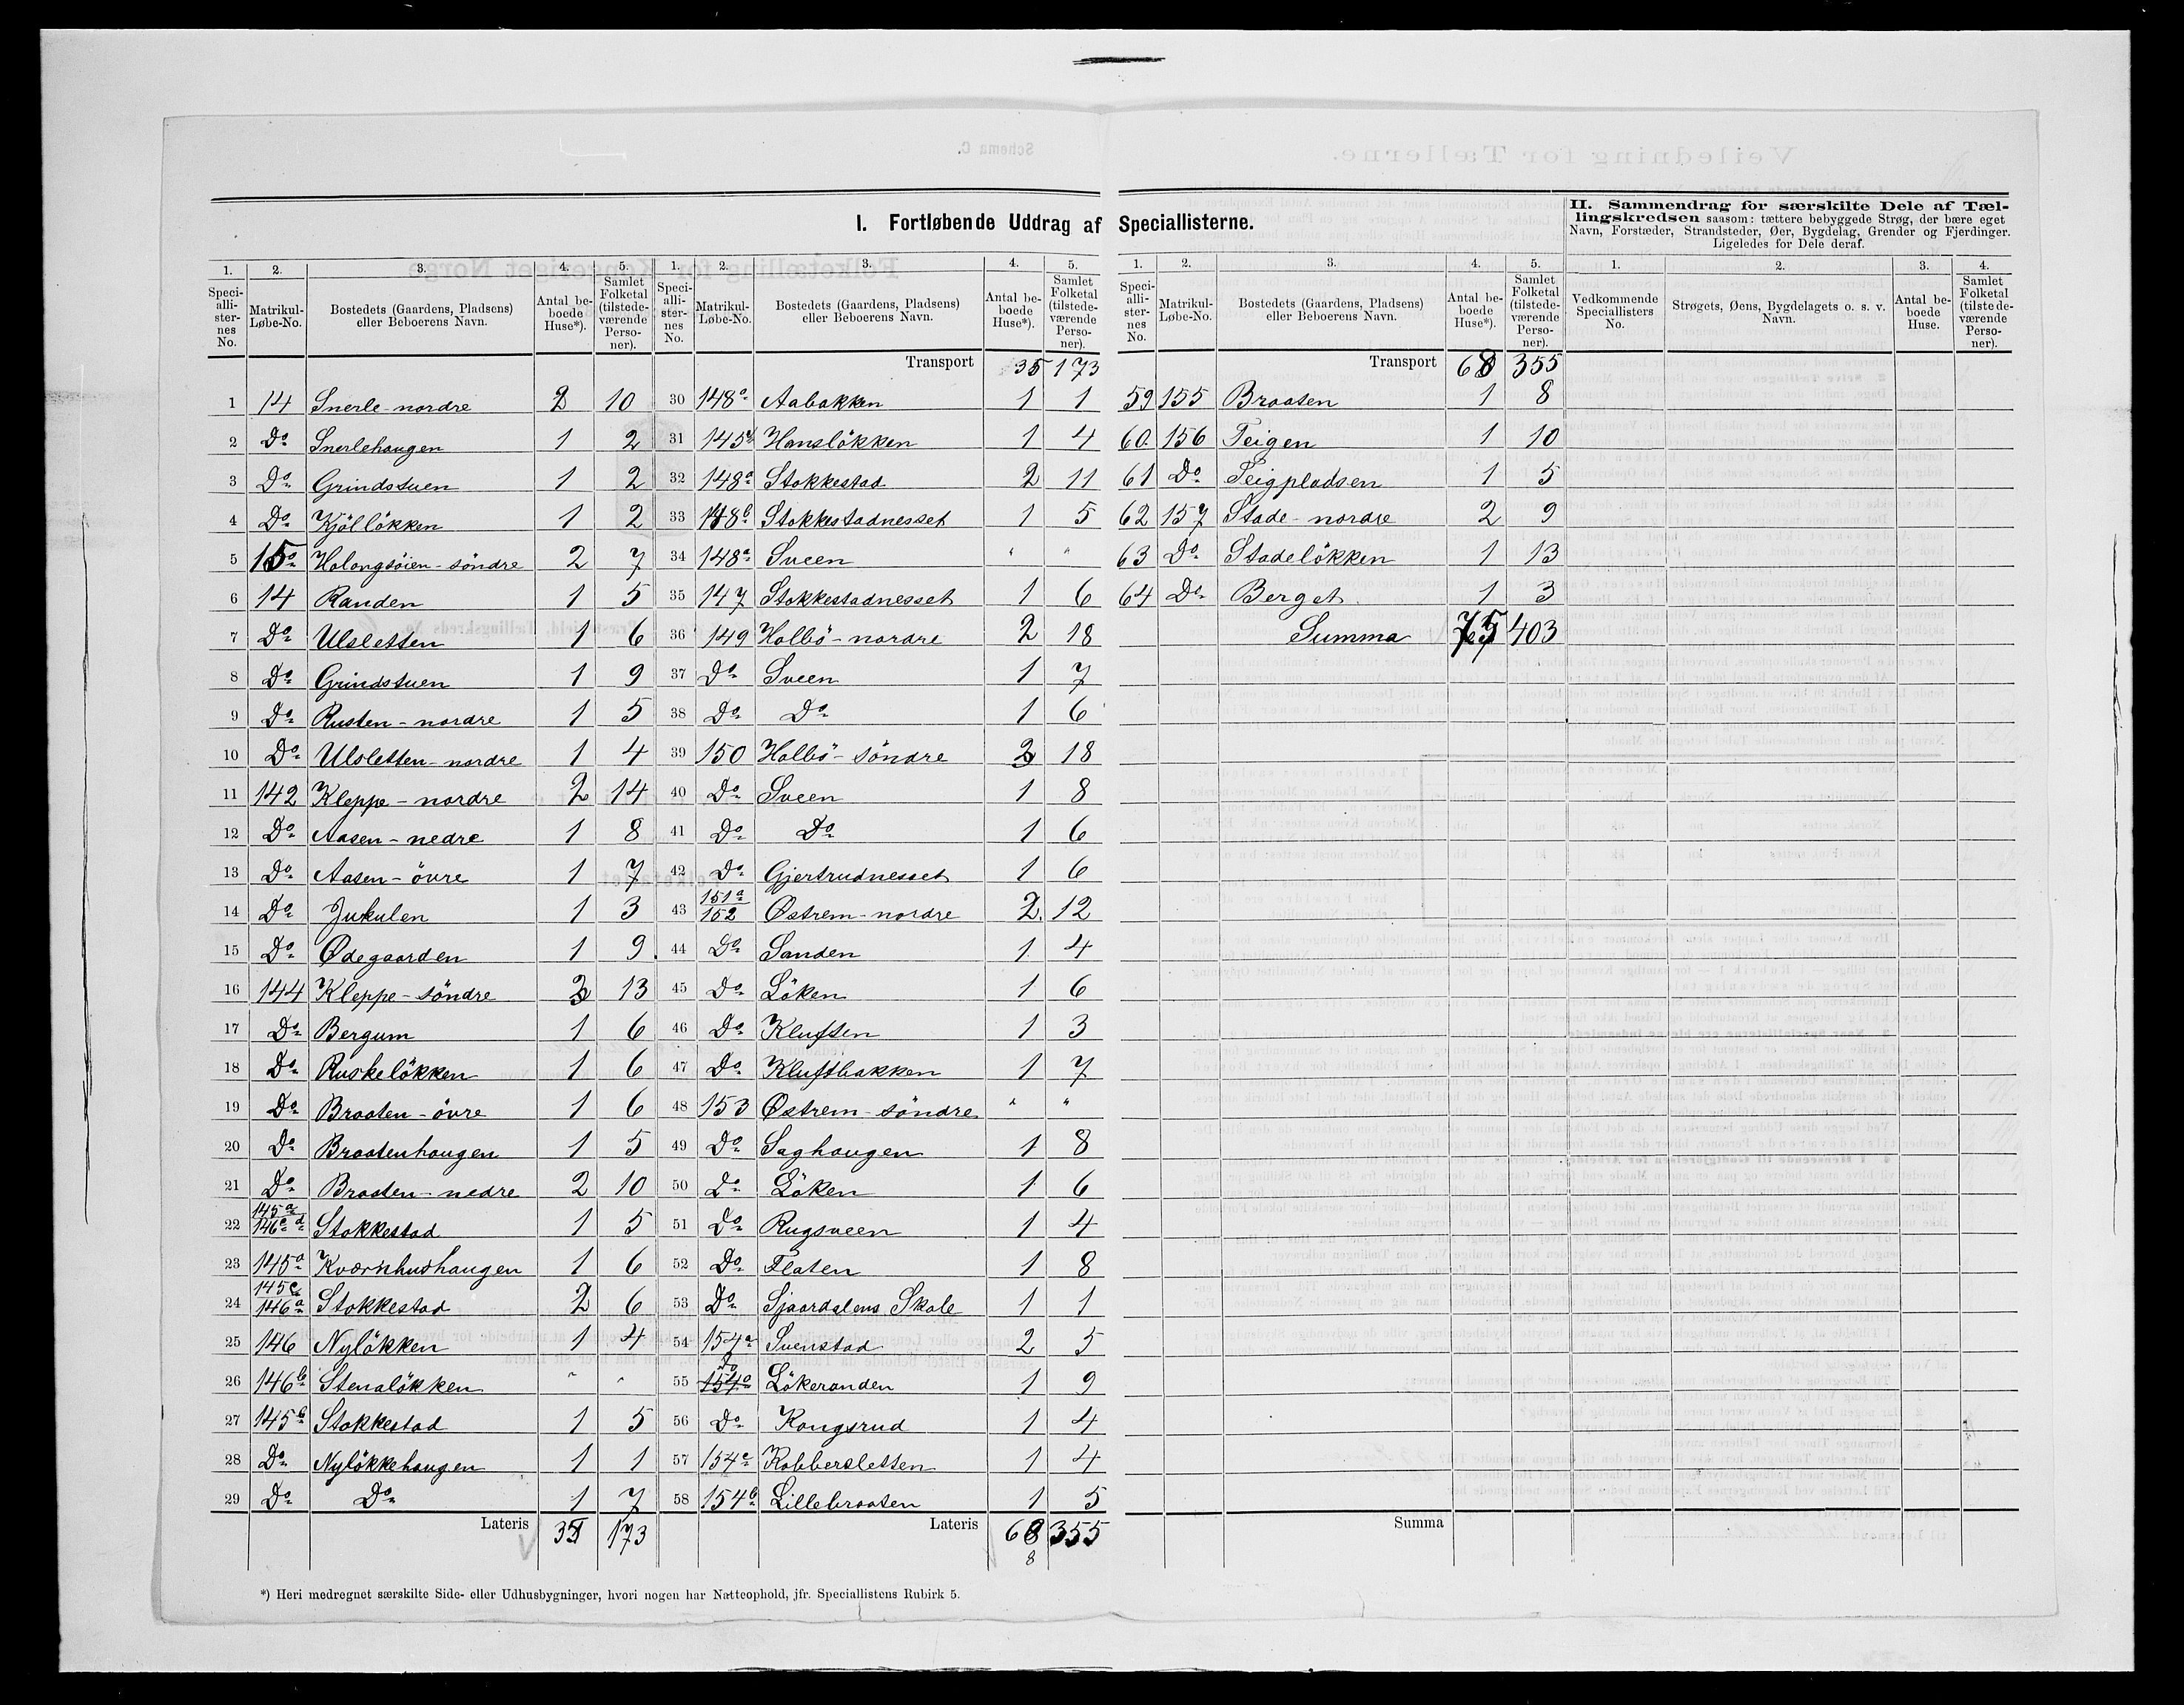 I. Fortløbende Uddrag af Speciallisterne.
II. Sammendrag for særskilte Dele af Tællingskredsen saasom: tættere bebyggede Strøg, der bære eget
Navn, Forstæder, Strandsteder, Øer, Bygdelag, Grender og Fjerdinger.
Ligeledes for Dele deraf.
1. Speciallisternes No. 2. Matrikul-Løbe-No. 3. Bostedets (Gaardens, Pladsens) eller Beboerens Navn. 4. Antal beboede Huse*). 5. Samlet Folketal (tilstedeværende Personer).
1 14 Snerle nordre 2 10
2 Do Snerlehaugen 1 2
3 Do Grindstuen 1 2
4 Do Kjöllökken 1 2
5 15a Holongsöien-söndre 2 7
6 14 Randen 1 5
7 Do Ulsletten 1 6
8 Do Grindstuen 1 9
9 Do Rusten-nordre 1 5
10 Do Ulsletten-nordre 1 4
11 142 Kleppe-nordre 2 14
12 Do Aasen-nedre 1 8
13 Do Aasen-övre 1 7
14 Do Jukulen 1 3
15 Do Ødegaarden 1 9
16 144 Kleppe-söndre 3 13
17 Do Bergum 1 6
18 Do Ruskelökken 1 6
19 Do Braaten-övre 1 6
20 Do Braatenhaugen 1 5
21 Do Braaten-nedre 2 10
22 145a 146c d Stokkestad 1 5
23 145a Kværnhushaugen 1 6
24 145c 146a Stokkestad 2 6
25 146 Nylökken 1 4
26 146b Stenalökken " "
27 145b Stokkestad 1 5
28 Do Nylökkehaugen 1 1
29 Do Do 1 7
Lateris 35 173
1. Speciallisternes No. 2. Matrikul-Løbe-No. 3. Bostedets (Gaardens, Pladsens) eller Beboerens Navn. 4. Antal beboede Huse*). 5. Samlet Folketal (tilstedeværende Personer).
Transport 35 173
30 148a Aabakken 1 1
31 145b Hanslökken 1 4
32 148a Stokkestad 2 11
33 148b Stokkestadnesset 1 5
34 148a Sveen " "
35 147 Stokkestadnesset 1 6
36 149 Holbö-nordre 2 18
37 Do Sveen 1 7
38 Do Do 1 6
39 150 Holbö-söndre 3 18
40 Do Sveen 1 8
41 Do Do 1 6
42 Do Gjertrudnesset 1 6
43 151a 152 Østrem-nordre 2 12
44 Do Sanden 1 4
45 Do Löken 1 6
46 Do Kluften 1 3
47 Do Kluftbakken 1 7
48 153 Østrem-söndre " "
49 Do Saghaugen 1 8
50 Do Löken 1 6
51 Do Rugsveen 1 4
52 Do Flaten 1 8
53 Do Sjaardalens Skole 1 1
54 154a Svenstad 2 5
55 Do 154a Lökeranden 1 9
56 Do Kongsrud 1 4
57 154a Kobbersletten 1 4
58 154b Lillebraaten 1 5
Lateris 68 355
8
1. Speciallisternes No. 2. Matrikul-Løbe-No. 3. Bostedets (Gaardens, Pladsens) eller Beboerens Navn. 4. Antal beboede Huse*). 5. Samlet Folketal (tilstedeværende Personer).
Transport 68 355
59 155 Braaten 1 8
60. 156 Teigen 1 10
61 Do Teigpladsen 1 5
62 157 Stade-nordre 2 9
63 Do Stadelökken 1 13
64 Do Berget 1 3
Summa 75 403
Summa
1. Vedkommende Speciallisters No. 2. Strøgets, Øens, Bygdelagets o. s. v. Navn. 3. Antal beboede Huse. 4. Samlet Folketal (tilstedeværende Personer).
*) Heri medregnet særskilte Side- eller Udhusbygninger, hvori nogen har Natteophold, jfr. Speciallistens Rubirk 5.